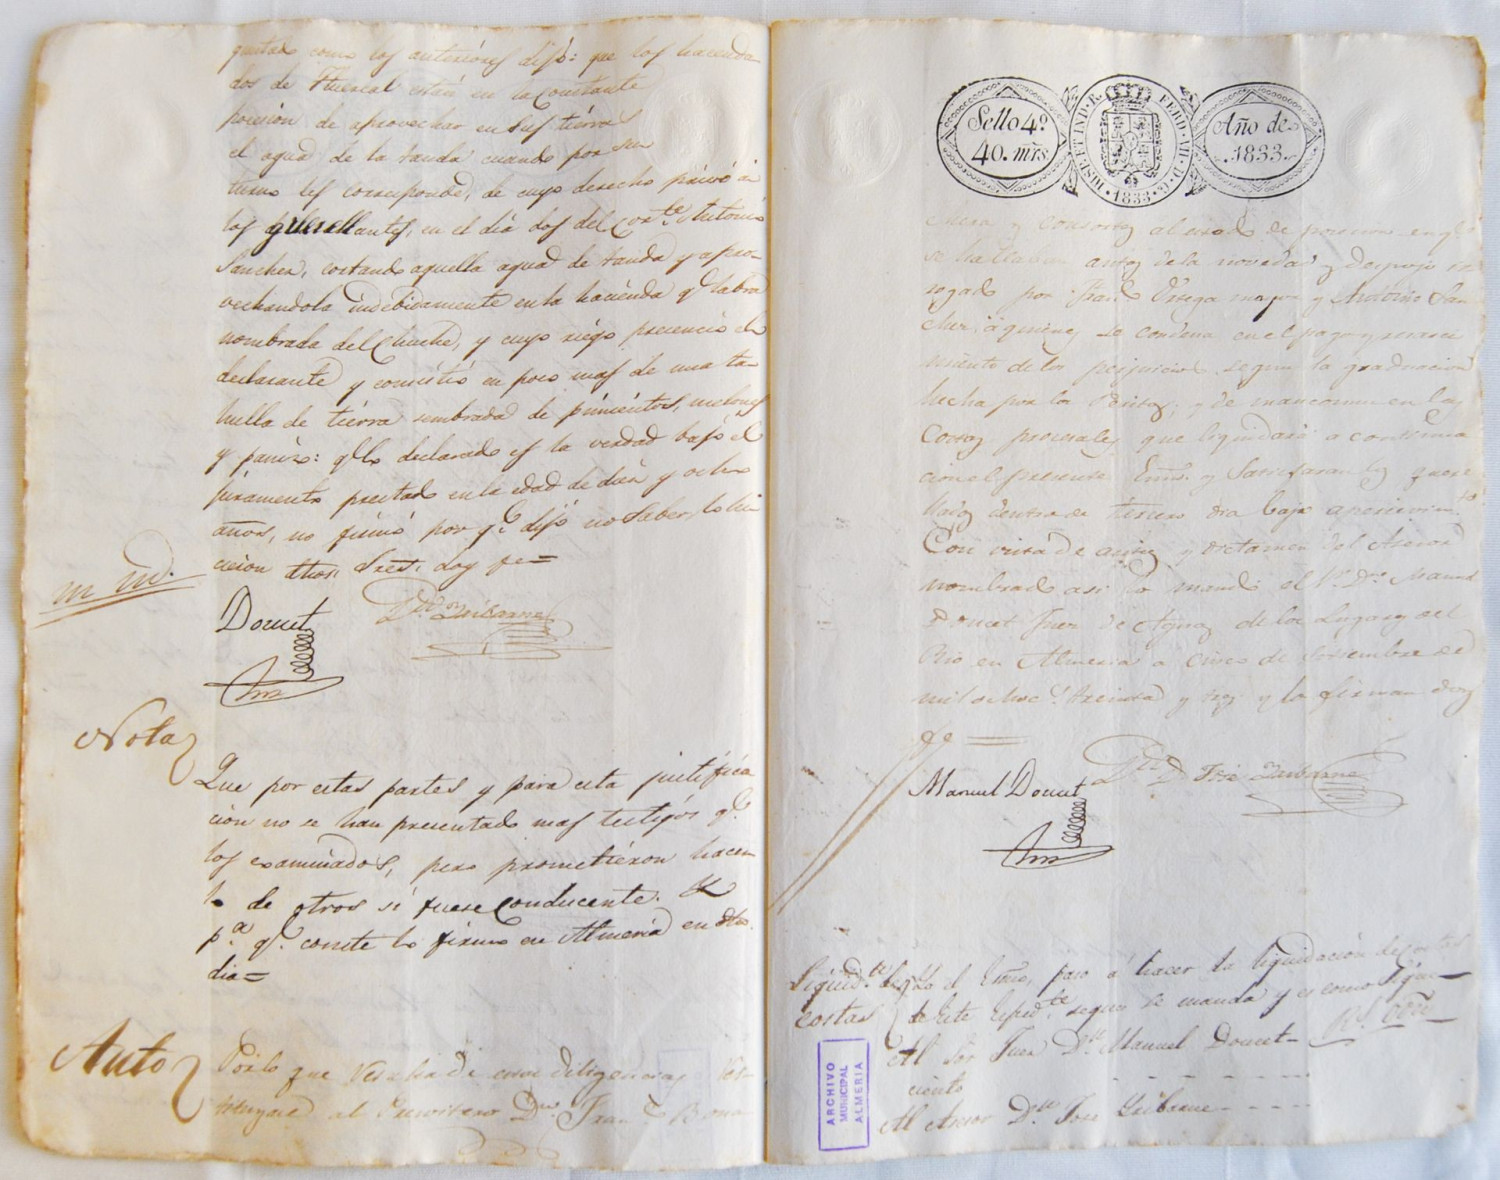 guntado como los anteriores dijo: que los hacenda
dos de Huercal están en la Constante
posesión de aprovechar en sus tierras
el agua de la tanda cuando por su
turno les corresponde, de cuyo derecho privó á
los querellantes, en el día dos del Corr.te Antonio
Sanchez, cortando aquella agua de tanda y apro-
vechandola indebidamente en la hacienda q.e labra
nombrada del Chuche, y cuyo riego presenció el
declarante y consistió en poco mas de una ta
hulla de tierra sembrada de pimientos, melones
y panizo: q.e lo declarado es la verdad bajo el
juramento prestado en la edad de diez y ocho
años, no firmó por q.e dijo no saber, lo hi
cieron dhos. Sres. doy fe=
Doucet
D.or Iribarne
Nota
Que por estas partes y para esta justifica
cion no se han presentado mas testigos q.e
los examinados, pero prometieron hacer
lo de otros si fuese Conducente. Y
p.a q.e conste lo firmo en Almería en dho.
dia=
Auto
Por lo que resulta de estas diligencias Res-
tituyase al Presvitero D.n Fran.co Bona
Sello 4º.
40. mrs.
HISP. ET IND. R. FERD. VII. D. G.
1833
Año de
1833.
chera y consortes al uso de posesion en q.e
se hallaban antes de la novedad y despojo
por Fran.co Ortega mayor y Antonio San
chez, á quienes se condena en el pago y resarci
miento de los perjuicios segun la graduacion
hecha por los Peritos; y de mancomun en las
Costas procesales, que liquidará a continua
cion el presente Essno. y Satisfaran los quere
llados dentro de tercero dia bajo apercivim.to
Con vista de autos y dictamen del Asesor
nombrado asi lo mandó el S.r D.n Manuel
Doucet Juez de Aguas de los Lugares del
Rio en Almeria a cinco de Noviembre de
mil ochoc.s treinta y tres y lo firman doy
fe=
Manuel Doucet
D.or D. José Iribarne
Liquid.on de
costas
Yo el Essno, paso á hacer la liquidación de costas
de este Exped.te segun se manda y es como sigue
R.s
Al Sor Juez D.n Manuel Doucet
ciento
Al Asesor D.n José Iribarne
ARCHIVO
MUNICIPAL
ALMERIA